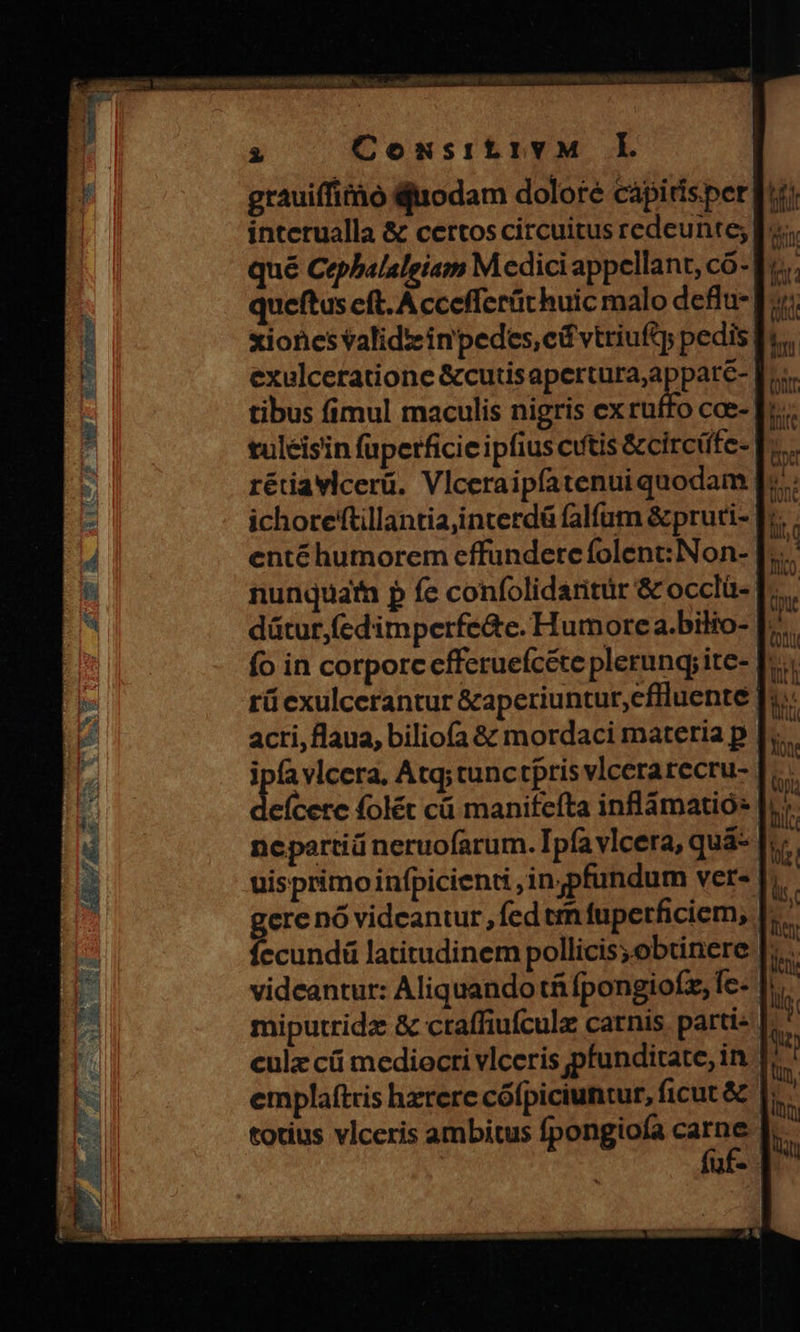 2 CONSILIVM I.
grauiſſimo quodam dolore capitis per
interualla & certos circuitus redeunte,
quē Cephalalgiam Medici appellant, cō-
queſtus eſt. Acceſſerūt huic malo deflu-
xiones validæ in pedes, cū vtriuſq; pedis
exulceratione & cutis apertura, apparē-
tibus ſimul maculis nigris ex ruffo cœ-
ruleis in ſuperficie ipſius cutis & circūfe-
rētia vlcerū. Vlcera ipſa tenui quodam
ichore ſtillantia, interdū ſalſum & pruri-
entē humorem effundere ſolent: Non-
nunquam p ſe conſolidantur & occlu-
dūtur, ſed imperfecte. Humore a. bilio-
ſo in corpore efferueſcēte plerunq; ite-
rū exulcerantur & aperiuntur, effluente
acri, flaua, bilioſa & mordaci materia p
ipſa vlcera. Atq; tunc tp̄ris vlcera recru-
deſcere ſolēt cū manifeſta inflāmatio-
ne partiū neruoſarum. Ipſa vlcera, quā-
uis primo inſpicienti, in pfundum ver-
gere nō videantur, ſed tm̄ ſuperficiem,
ſecundū latitudinem pollicis, obtinere
videantur: Aliquando tn̄ ſpongioſæ, ſe-
miputridæ & craſſiuſculæ carnis parti-
culæ cū mediocri vlceris pfunditate, in
emplaſtris hærere cōſpiciuntur, ſicut &
totius vlceris ambitus ſpongioſa carne
ſuf-